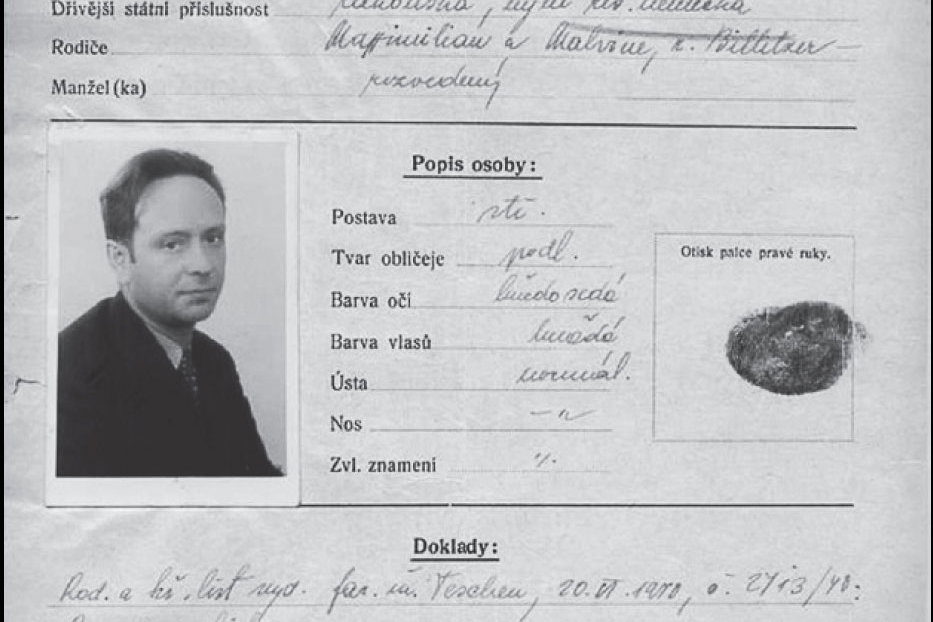 Dřívější státní příslušnost rakouská, nyní německá
Rodiče Maximilian a Malvine, r. Billitzer –
Manžel(ka) rozvedený
Popis osoby:
Postava stř.
Tvar obličeje podl.
Barva očí hnědošedá
Barva vlasů hnědá
Ústa normál.
Nos – " –
Zvl. znamení ./.
Otisk palce pravé ruky.
Doklady:
Rod. a kř. list vyd. far. úř. Teschen, 20.VI.1940, č. 2713/40: